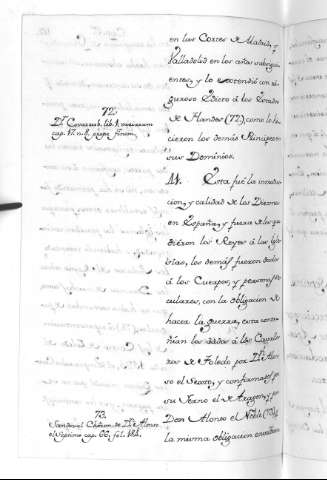 en las Cortes de Madrid, y
Valladolid en los años subsiguientes
entes, y lo extendió con ri-
guroso Edicto á los Estados
de Flandes (72) como lo hi-
cieron los demás Principes
sus Dominios.
72.
cap. 17. n. 8.
44. Esta fué la introduc-
cion, y calidad de los Diezmos
en España, y fuera de los que
dieron los Reyes á las Igle-
sias, los demás fueron dados
á los Cuerpos, y personas par-
ticulares, con la obligacion de
hacer la guerra, esta conte-
nian los dados á los Cavalle-
ros de Toledo por Dn. Alon-
so el Sexto, y confirmados por
su Yerno el de Aragon, y por
Don Alonso el Noble (73), y
la misma obligacion
73.
Sandoval Chron. de Dn. Alonso
el Septimo cap. 66, fol. 184.